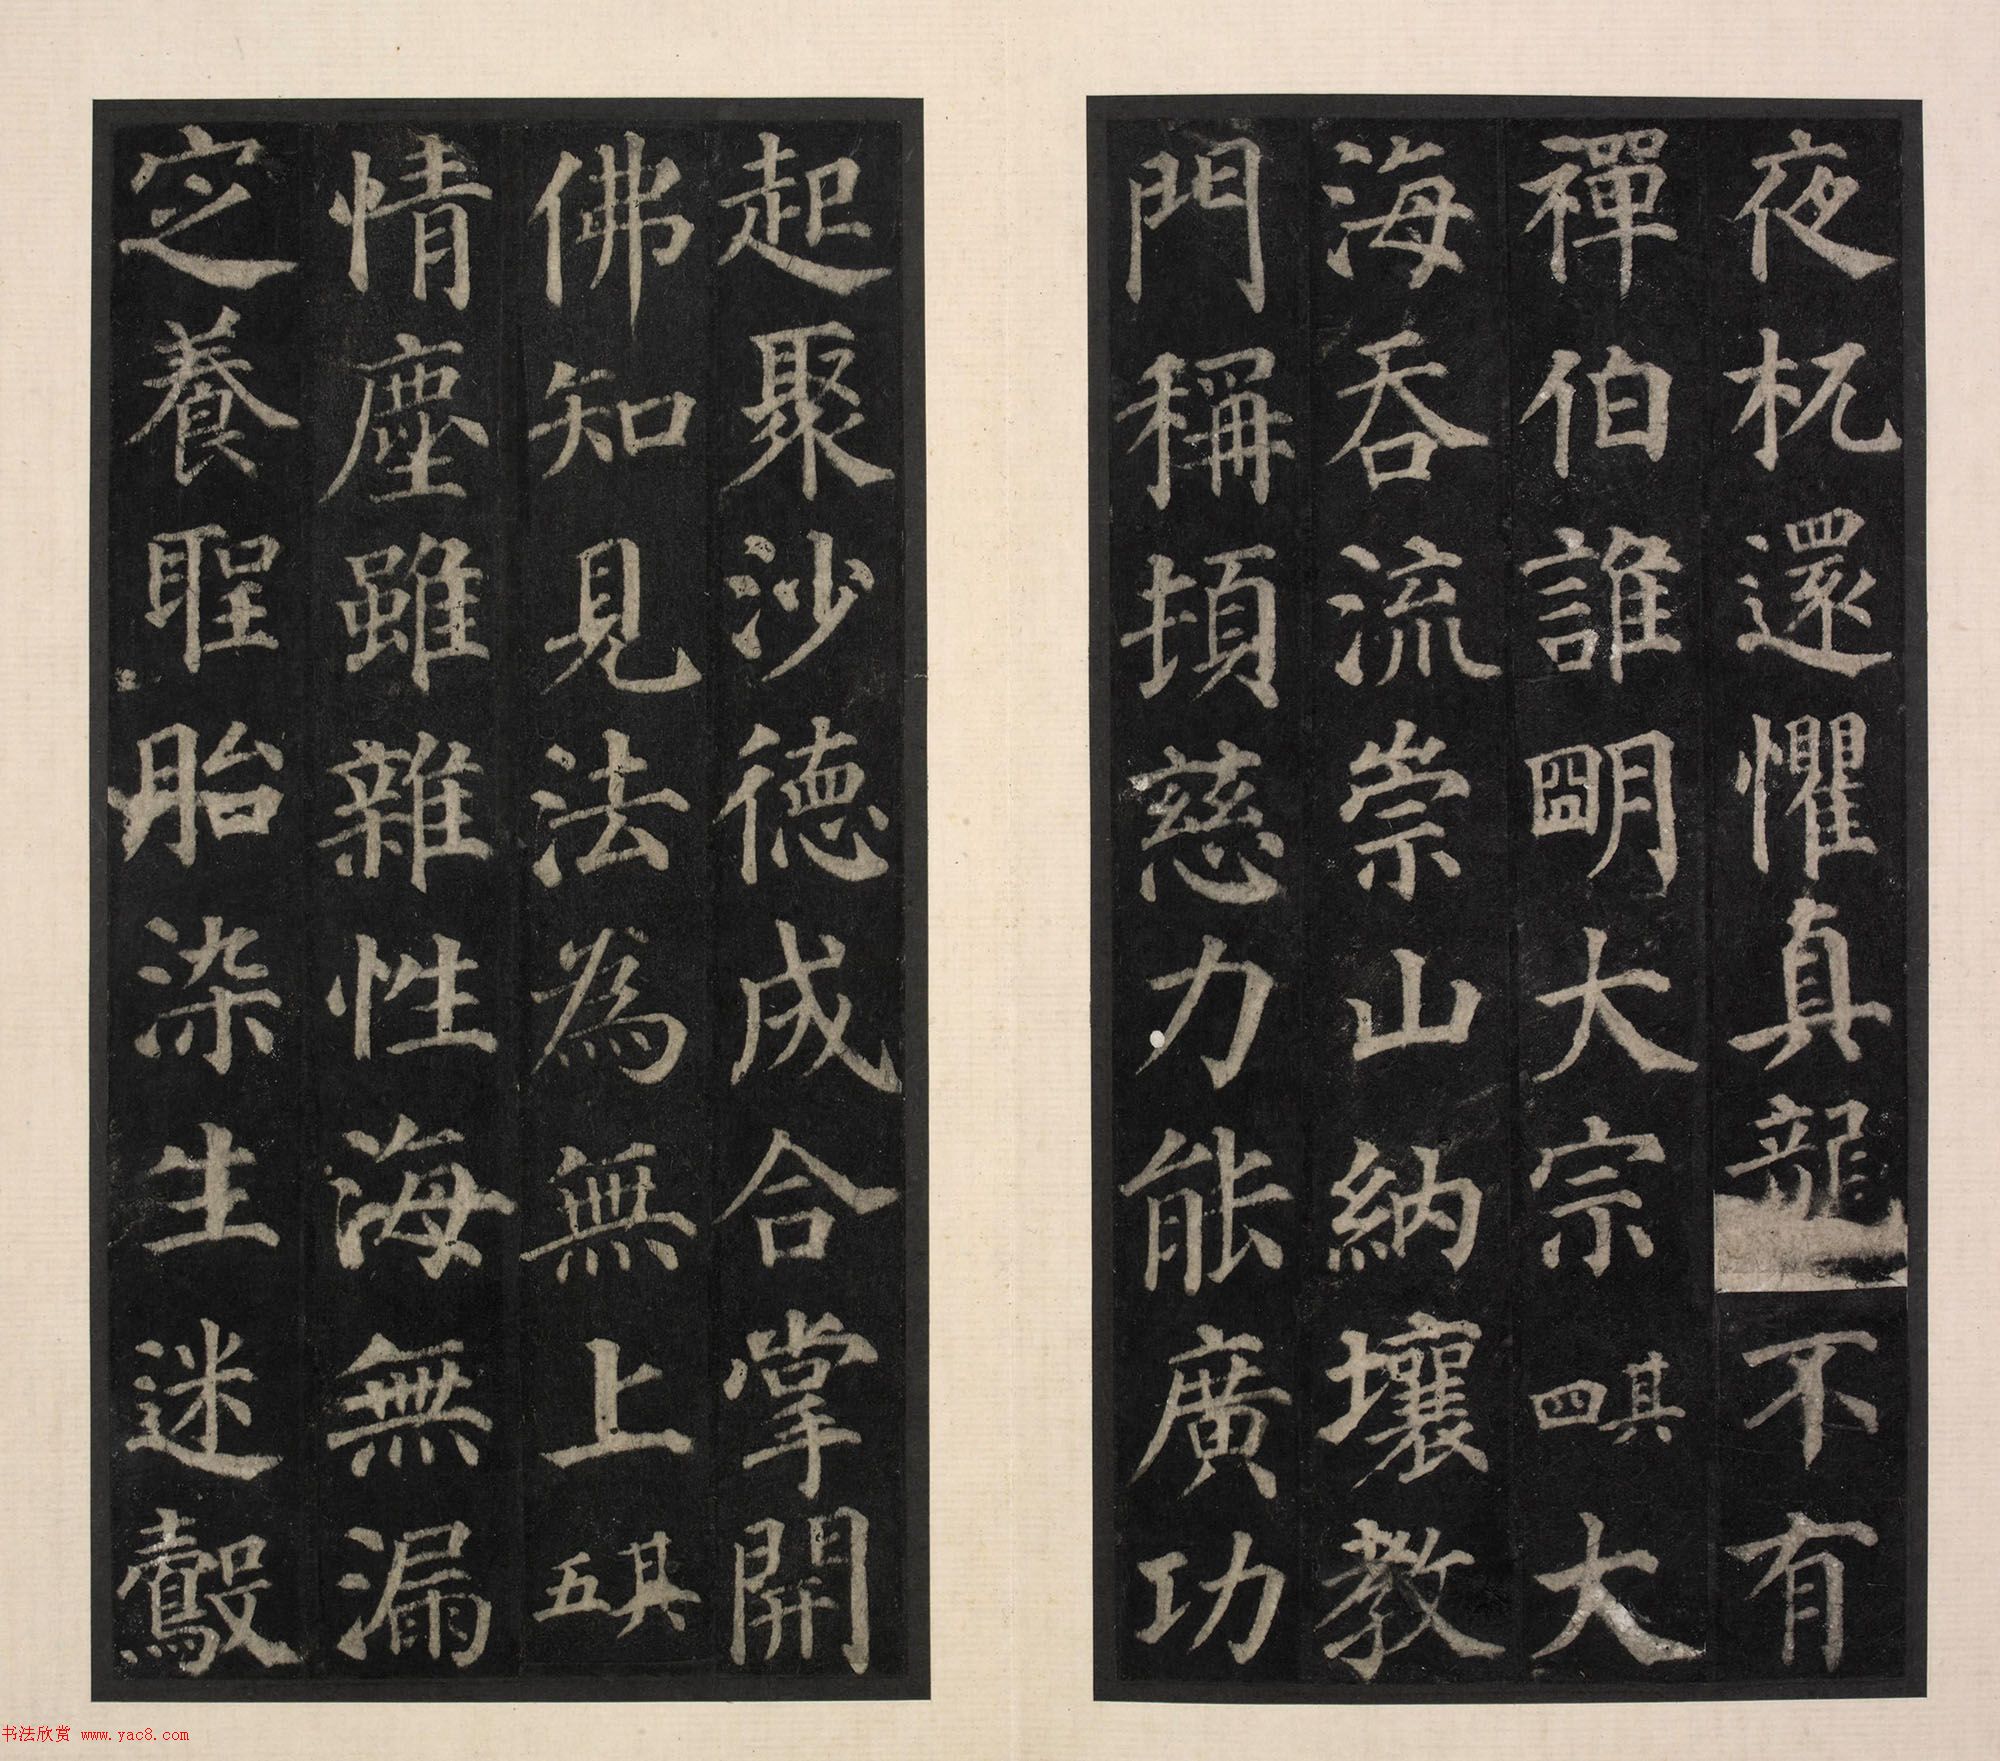 夜杌還懼真龍不有
禪伯誰明大宗其四大
海吞流崇山納壤教
門稱頓慈力能廣功
起聚沙德成合掌開
佛知見法為無上其五
情塵雖雜性海無漏
定養聖胎染生迷鷇
书法欣赏 www.yac8.com